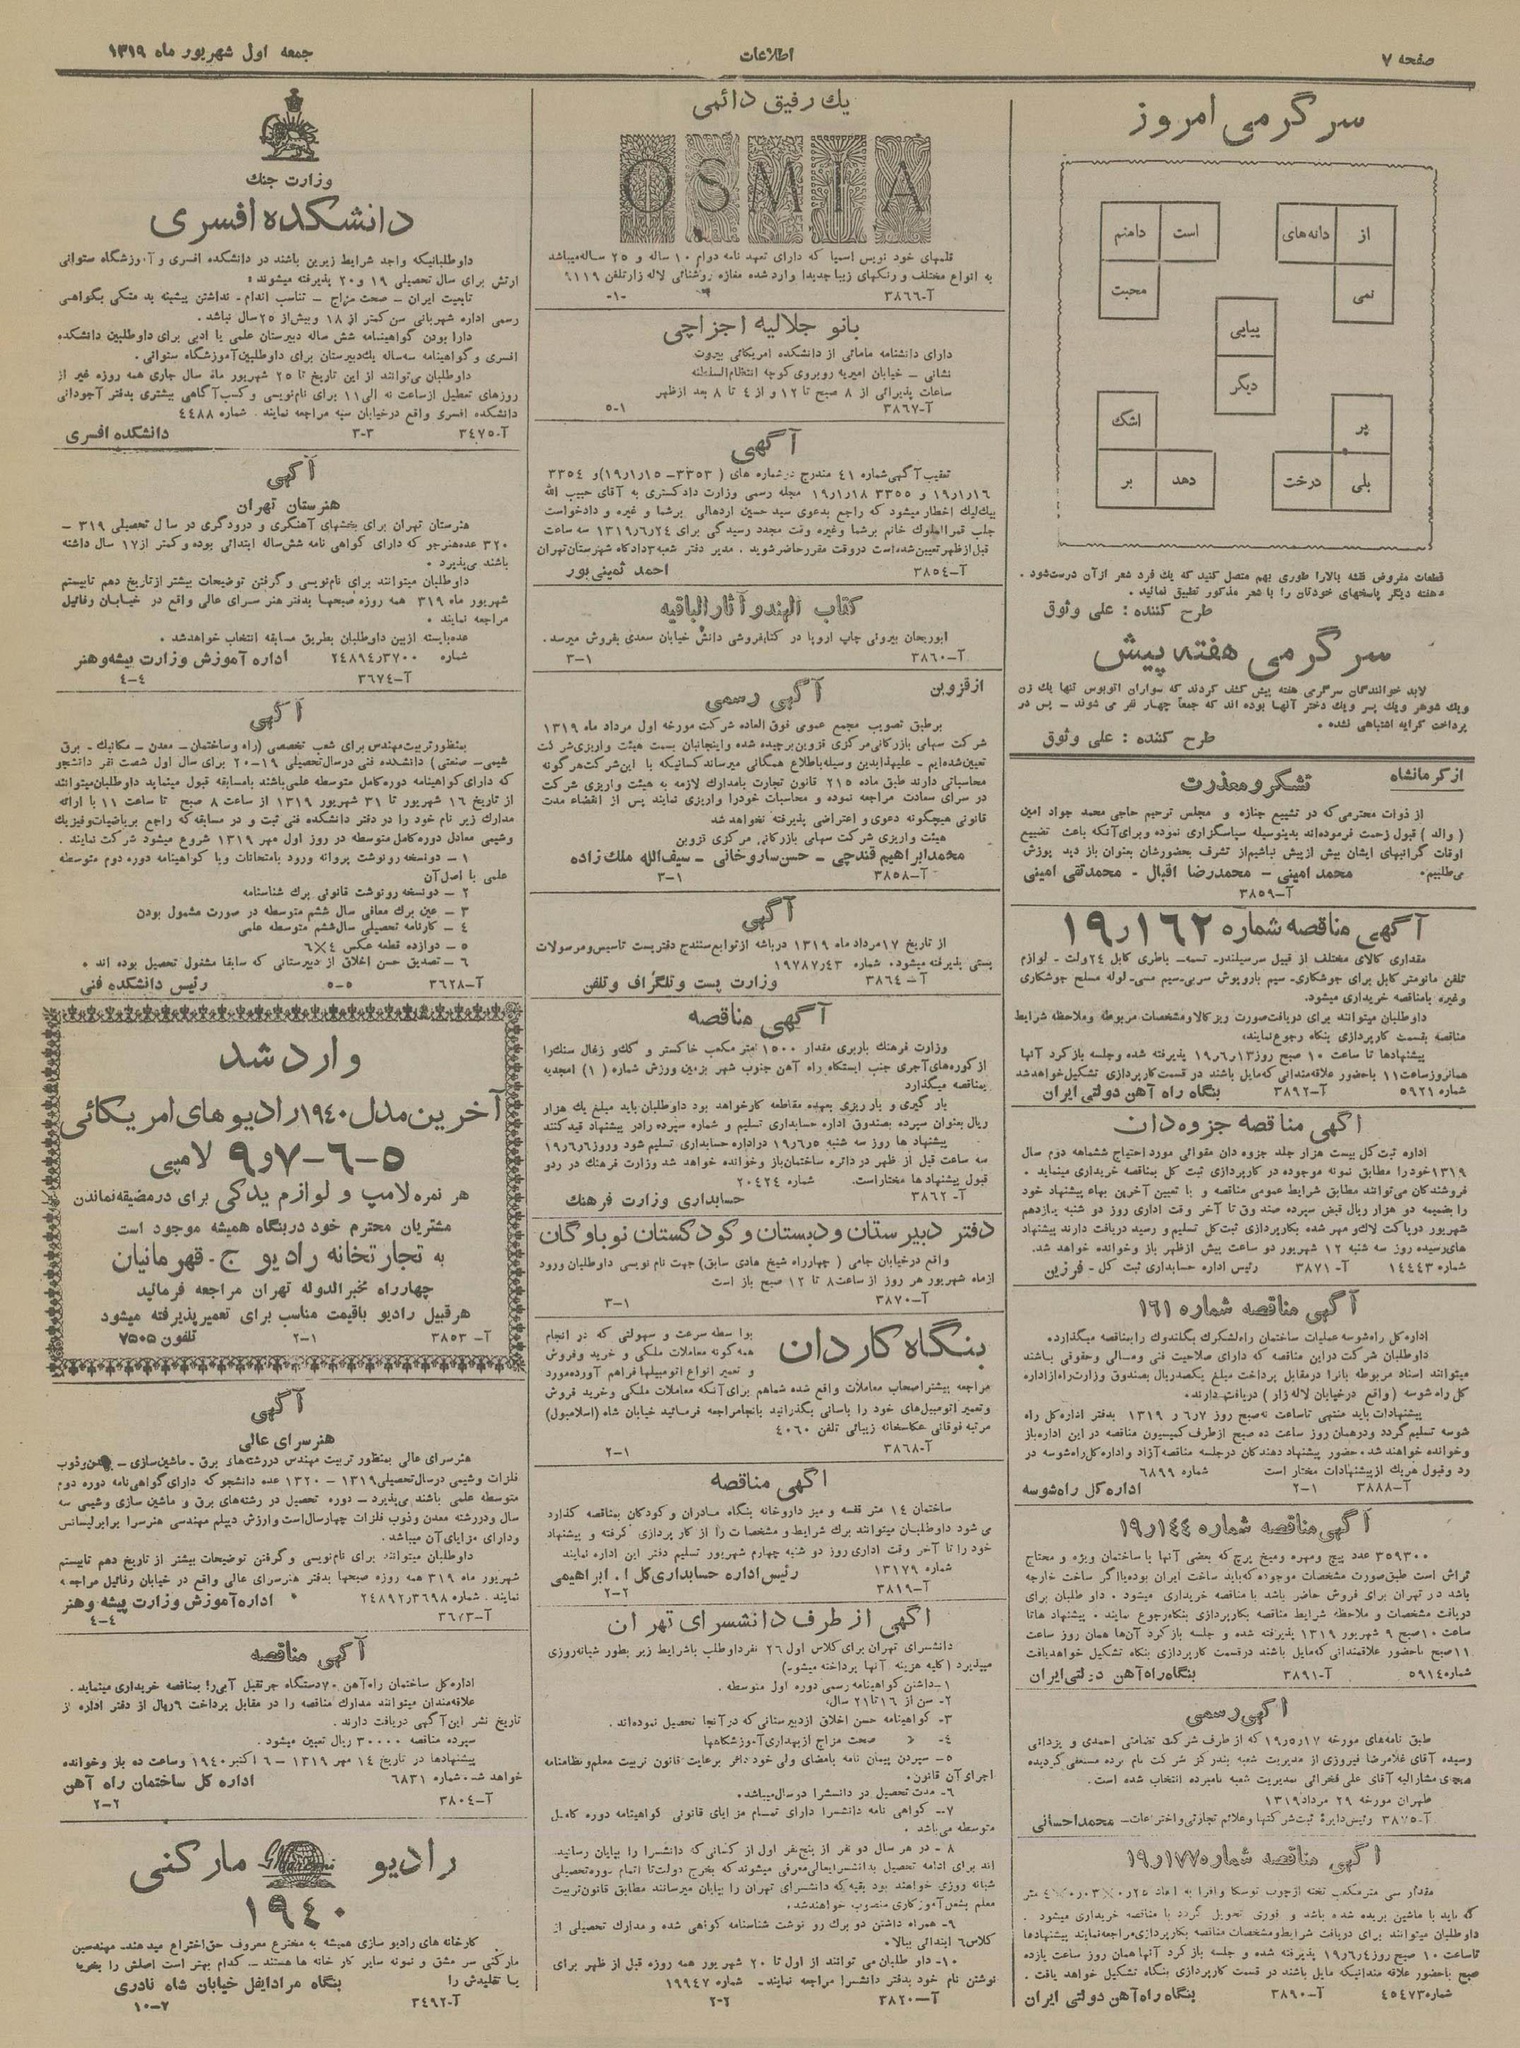 صفحه ۷
اطلاعات
جمعه اول شهریور ماه ۱۳۱۹
سرگرمی امروز
از
دانه‌های
نمی
است
دامنم
محبت
بیابی
دیگر
پر
بلی
درخت
اشک
بر
دهد
قطعات مفروض نقشه بالا را طوری بهم متصل کنید که یک فرد شعر از آن درست شود .
هفته دیگر پاسخهای خودتان را با شعر مذکور تطبیق نمائید .
طرح کننده : علی وثوق
سرگرمی هفته پیش
لابد خوانندگان سرگرمی هفته پیش کشف کردند که سواران اتوبوس تنها یک زن
ویک شوهر ویک پسر ویک دختر آنها بوده اند که جمعاً چهار نفر می شوند – پس در
پرداخت کرایه اشتباهی نشده .
طرح کننده : علی وثوق
از کرمانشاه
تشکر و معذرت
از ذوات محترمی که در تشییع جنازه و مجلس ترحیم حاجی محمد جواد امین
( والد ) قبول زحمت فرموده‌اند بدینوسیله سپاسگزاری نموده وبرای آنکه باعث تضییع
اوقات گرانبهای ایشان بیش از پیش نباشیم از تشرف بحضورشان بعنوان باز دید پوزش
می‌طلبیم .
محمد امینی – محمدرضا اقبال – محمدتقی امینی
آ–۳۸۵۹
آگهی مناقصه شماره ۱۹ر۱۶۲
مقداری کالای مختلف از قبیل سرسیلندر – تسمه – باطری کابل ۲۴ولت – لوازم
تلفن مانومتر کابل برای جوشکاری – سیم باروپوش سربی – سیم مسی – لوله مسلح جوشکاری
وغیره بامناقصه خریداری میشود .
داوطلبان میتوانند برای دریافت صورت ریز کالا ومشخصات مربوطه وملاحظه شرایط
مناقصه بقسمت کارپردازی بنگاه رجوع نمایند .
پیشنهادها تا ساعت ۱۰ صبح روز ۱۹ر۶ر۱۳ پذیرفته شده وجلسه باز کرد آنها
همانروز ساعت ۱۱ باحضور علاقه‌مندانی که مایل باشند در قسمت کارپردازی تشکیل خواهد شد
شماره ۵۹۲۱ آ–۳۸۹۲ بنگاه راه آهن دولتی ایران
آگهی مناقصه جزوه دان
اداره ثبت کل بیست هزار جلد جزوه دان مقوائی مورد احتیاج ششماهه دوم سال
۱۳۱۹ خود را مطابق نمونه موجوده در کارپردازی ثبت کل بمناقصه خریداری مینماید .
فروشندگان می‌توانند مطابق شرایط عمومی مناقصه و با تعیین آخرین بهاء پیشنهاد خود
را بضمیمه دو هزار ریال قبض سپرده صندوق تا آخر وقت اداری روز دو شنبه یازدهم
شهریور درپاکت لاک ومهر شده بکارپردازی ثبت کل تسلیم و رسید دریافت دارند پیشنهاد
های رسیده روز سه شنبه ۱۲ شهریور دو ساعت پیش از ظهر باز وخوانده خواهد شد .
شماره ۱۴۴۴۳ آ–۳۸۷۱ رئیس اداره حسابداری ثبت کل – فرزین
آگهی مناقصه شماره ۱۶۱
اداره کل راه شوسه عملیات ساختمان راه لشکرک بگلندوک را بمناقصه میگذارد
داوطلبان شرکت دراین مناقصه که دارای صلاحیت فنی ومالی وحقوقی باشند
میتوانند اسناد مربوطه بانرا درمقابل پرداخت مبلغ یکصدریال بصندوق وزارت راه از اداره
کل راه شوسه ( واقع درخیابان لاله زار ) دریافت دارند .
پیشنهادات باید منتهی تا ساعت نه صبح روز ۷ر۶ر ۱۳۱۹ بدفتر اداره کل راه
شوسه تسلیم گردد ودرهمان روز ساعت ده صبح از طرف کمیسیون مناقصه در این اداره باز
وخوانده خواهند شد . حضور پیشنهاد دهندگان درجلسه مناقصه آزاد واداره کل راه شوسه در
رد وقبول هریک از پیشنهادات مختار است شماره ۶۸۹۹
آ–۳۸۸۸ ۲–۱ اداره کل راه شوسه
آگهی مناقصه شماره ۱۹ر۱۴۴
۳۵۹۳۰۰ عدد پیچ ومهره ومیخ پرچ که بعضی آنها با ساختمان ویژه و محتاج
تراش است طبق صورت مشخصات موجوده که باید ساخت ایران بوده یا اگر ساخت خارجه
باشد در تهران برای فروش حاضر باشد با مناقصه خریداری میشود . داو طلبان برای
دریافت مشخصات و ملاحظه شرایط مناقصه بکارپردازی بنگاه رجوع نمایند . پیشنهاد ها تا
ساعت ۱۰ صبح ۹ شهریور ۱۳۱۹ پذیرفته شده و جلسه باز کرد آن‌ها همان روز ساعت
۱۱ صبح با حضور علاقمندانی که مایل باشند درقسمت کارپردازی بنگاه تشکیل خواهد یافت
شماره ۵۹۱۴ آ–۳۸۹۱ بنگاه راه آهن دولتی ایران
آگهی رسمی
طبق نامه‌های مورخه ۱۹ر۵ر۱۷ که از طرف شرکت تضامنی احمدی و یزدانی
رسیده آقای غلامرضا فیروزی از مدیریت شعبه بندرگز شرکت نام برده مستعفی گردیده
وبجای مشارالیه آقای علی فخرائی بمدیریت شعبه نامبرده انتخاب شده است .
طهران مورخه ۲۹ مرداد ۱۳۱۹
آ–۳۸۷۵ رئیس دایرهٔ ثبت شرکتها وعلائم تجارتی واختراعات – محمد احسانی
آگهی مناقصه شماره ۱۹ر۱۷۷
مقدار سی مترمکعب تخته از چوب توسکا وافرا به ابعاد ۲۵ر۰×۰۳ر۰×۴ متر
که باید با ماشین بریده شده باشد و فوری تحویل گردد با مناقصه خریداری میشود .
داوطلبان میتوانند برای دریافت شرایط ومشخصات مناقصه بکارپردازی مراجعه نمایند پیشنهادها
تا ساعت ۱۰ صبح روز ۱۹ر۶ر۴ پذیرفته شده و جلسه باز کرد آنها همان روز ساعت یازده
صبح باحضور علاقه مندانیکه مایل باشند در قسمت کارپردازی بنگاه تشکیل خواهد یافت .
شماره ۴۵۴۷۳ آ–۳۸۹۰ بنگاه راه آهن دولتی ایران
یک رفیق دائمی
OSMIA
قلمهای خود نویس اسمیا که دارای تعهد نامه دوام ۱۰ ساله و ۲۵ ساله میباشد
به انواع مختلف و رنگهای زیبا جدیدا وارد شده مغازه روشنائی لاله زار تلفن ۶۱۱۹
آ–۳۸۶۶ –۱–
بانو جلالیه اجزاچی
دارای دانشنامه مامائی از دانشکده امریکائی بیروت
نشانی – خیابان امیریه روبروی کوچه انتظام السلطنه
ساعات پذیرائی از ۸ صبح تا ۱۲ و از ۴ تا ۸ بعد از ظهر
آ–۳۸۶۷ ۵–۱
آگهی
تعقیب آگهی شماره ۴۱ مندرج در شماره های ( ۳۳۵۳ – ۱۹ر۱ر۱۵) و ۳۳۵۴
۱۹ر۱ر۱۶ و ۳۳۵۵ ۱۹ر۱ر۱۸ مجله رسمی وزارت دادگستری به آقای حبیب الله
بیک لیک اخطار میشود که راجع بدعوی سید حسین اردهالی برشما و غیره و دادخواست
جلب قمرالملوک خانم برشما وغیره وقت مجدد رسیدگی برای ۱۳۱۹ر۶ر۲۴ سه ساعت
قبل از ظهر تعیین شده است دروقت مقرر حاضر شوید . مدیر دفتر شعبه ۳ دادگاه شهرستان تهران
آ–۳۸۵۴ احمد ثمینی پور
کتاب الهند و آثار الباقیه
ابوریحان بیرونی چاپ اروپا در کتابفروشی دانش خیابان سعدی بفروش میرسد .
آ–۳۸۶۰ ۳–۱
از قزوین
آگهی رسمی
برطبق تصویب مجمع عمومی فوق العاده شرکت مورخه اول مرداد ماه ۱۳۱۹
شرکت سهامی بازرگانی مرکزی قزوین برچیده شده واینجانبان بسمت هیئت واریزی شرکت
تعیین شده‌ایم – علیهذا بدین وسیله باطلاع همگانی میرساند کسانیکه با این شرکت هر گونه
محاسباتی دارند طبق ماده ۲۱۵ قانون تجارت بامدارک لازمه به هیئت واریزی شرکت
در سرای سعادت مراجعه نموده و محاسبات خودرا واریزی نمایند پس از انقضاء مدت
قانونی هیچگونه دعوی و اعتراضی پذیرفته نخواهد شد
هیئت واریزی شرکت سهامی بازرگانی مرکزی قزوین
محمد ابراهیم قندچی – حسن ساروخانی – سیف‌الله ملک زاده
آ–۳۸۵۸ ۳–۱
آگهی
از تاریخ ۱۷ مرداد ماه ۱۳۱۹ درباشه از توابع سنندج دفتر پست تاسیس و مرسولات
پستی پذیرفته میشود . شماره ۱۹۷۸۷ر۴۳
آ–۳۸۶۴ وزارت پست و تلگراف و تلفن
آگهی مناقصه
وزارت فرهنگ باربری مقدار ۱۵۰۰ متر مکعب خاکستر و کک و زغال سنگ را
از کوره‌های آجری جنب ایستگاه راه آهن جنوب شهر بزمین ورزش شماره (۱) امجدیه
بمناقصه میگذارد
بار گیری و بار ریزی بعهده مقاطعه کار خواهد بود داوطلبان باید مبلغ یک هزار
ریال بعنوان سپرده بصندوق اداره حسابداری تسلیم و شماره سپرده رادر پیشنهاد قید کنند
پیشنهاد ها روز سه شنبه ۱۹ر۶ر۵ دراداره حسابداری تسلیم شود وروز ۱۹ر۶ر۶
سه ساعت قبل از ظهر در دائره ساختمان باز وخوانده خواهد شد وزارت فرهنگ در ردو
قبول پیشنهاد ها مختار است . شماره ۲۰۴۲۴
آ–۳۸۶۲ حسابداری وزارت فرهنگ
دفتر دبیرستان و دبستان و کودکستان نوباوگان
واقع در خیابان جامی ( چهارراه شیخ هادی سابق) جهت نام نویسی داوطلبان ورود
از ماه شهریور هر روز از ساعت ۸ تا ۱۲ صبح باز است
آ–۳۸۷۰ ۳–۱
بنگاه کاردان
بوا سطه سرعت و سهولتی که در انجام
همه گونه معاملات ملکی و خرید وفروش
و تعمیر انواع اتومبیلها فراهم آورده مورد
مراجعه بیشتر اصحاب معاملات واقع شده شما هم برای آنکه معاملات ملکی وخرید فروش
وتعمیر اتومبیل‌های خود را باسانی بگذرانید بانجا مراجعه فرمائید خیابان شاه (اسلامبول)
مرتبه فوقانی عکاسخانه زیبائی تلفن ۴۰۶۰
آ–۳۸۶۸ ۲–۱
آگهی مناقصه
ساختمان ۱۴ متر قفسه و میز داروخانه بنگاه مادران و کودکان بمناقصه گذارد
می شود داوطلبان میتوانند برک شرایط و مشخصات را از کار پردازی گرفته و پیشنهاد
خود را تا آخر وقت اداری روز دو شنبه چهارم شهریور تسلیم دفتر این اداره نمایند
شماره ۱۳۱۷۹ رئیس اداره حسابداری کل ا. ابراهیمی
آ–۳۸۱۹ ۲–۲
آگهی از طرف دانشسرای تهران
دانشسرای تهران برای کلاس اول ۲۶ نفر داوطلب باشرایط زیر بطور شبانه روزی
میپذیرد (کلیه هزینه آنها پرداخته میشود)
۱– داشتن گواهینامه رسمی دوره اول متوسطه .
۲– سن از ۱۶ تا ۲۱ سال،
۳– گواهینامه حسن اخلاق از دبیرستانی که در آنجا تحصیل نموده‌اند .
۴– » صحت مزاج از بهداری آموزشگاهها
۵– سپردن پیمان نامه بامضای ولی خود دائر برعایت قانون تربیت معلم و نظامنامه
اجرای آن قانون .
۶– مدت تحصیل در دانشسرا دوسال میباشد .
۷– گواهی نامه دانشسرا دارای تمام مزایای قانونی گواهینامه دوره کامل
متوسطه می‌باشد .
۸ – در هر سال دو نفر از پنج نفر اول از کسانی که دانشسرا را بپایان رسانیده
اند برای ادامه تحصیل بدانشسرایعالی معرفی میشوند که بخرج دولت تا اتمام دوره تحصیلی
شبانه روزی خواهند بود بقیه که دانشسرای تهران را بپایان میرسانند مطابق قانون تربیت
معلم بشغل آموزگاری منصوب خواهند شد .
۹– همراه داشتن دو برک رو نوشت شناسنامه گواهی شده و مدارک تحصیلی از
کلاس ۶ ابتدائی ببالا .
۱۰– داو طلبان می توانند از اول تا ۲۰ شهریور همه روزه قبل از ظهر برای
نوشتن نام خود بدفتر دانشسرا مراجعه نمایند – شماره ۱۹۹۴۷
آ–۳۸۲۰ ۲–۲
وزارت جنگ
دانشکده افسری
داوطلبانیکه واجد شرایط زیرین باشند در دانشکده افسری و آموزشگاه ستوانی
ارتش برای سال تحصیلی ۱۹ و ۲۰ پذیرفته میشوند :
تابعیت ایران – صحت مزاج – تناسب اندام – نداشتن پیشینه بد متکی بگواهی
رسمی اداره شهربانی سن کمتر از ۱۸ وبیش از ۲۵ سال نباشد .
دارا بودن گواهینامه شش ساله دبیرستان علمی یا ادبی برای داوطلبین دانشکده
افسری و گواهینامه سه ساله یک دبیرستان برای داوطلبین آموزشگاه ستوانی .
داوطلبان می‌توانند از این تاریخ تا ۲۵ شهریور ماه سال جاری همه روزه غیر از
روزهای تعطیل از ساعت نه الی ۱۱ برای نام نویسی و کسب آگاهی بیشتری بدفتر آجودانی
دانشکده افسری واقع درخیابان سپه مراجعه نمایند . شماره ۴۴۸۸
آ–۳۴۷۵ ۳–۳ دانشکده افسری
آگهی
هنرستان تهران
هنرستان تهران برای بخشهای آهنگری و درودگری در سال تحصیلی ۳۱۹ –
۳۲۰ عده هنرجو که دارای گواهی نامه شش ساله ابتدائی بوده و کمتر از ۱۷ سال داشته
باشند می‌پذیرد .
داوطلبان میتوانند برای نام نویسی و گرفتن توضیحات بیشتر از تاریخ دهم تا بیستم
شهریور ماه ۳۱۹ همه روزه صبحها بدفتر هنر سرای عالی واقع در خیابان رفائیل
مراجعه نمایند .
عده بایسته از بین داوطلبان بطریق مسابقه انتخاب خواهد شد .
شماره ۲۴۸۹۴ر۳۷۰۰ اداره آموزش وزارت پیشه و هنر
آ–۳۶۷۴ ۴–۴
آگهی
بمنظور تربیت مهندس برای شعب تخصصی (راه وساختمان – معدن – مکانیک – برق
شیمی – صنعتی) دانشکده فنی درسال تحصیلی ۱۹–۲۰ برای سال اول شصت نفر دانشجو
که دارای گواهینامه دوره کامل متوسطه علمی باشند بامسابقه قبول مینماید داوطلبان میتوانند
از تاریخ ۱۶ شهریور تا ۳۱ شهریور ۱۳۱۹ از ساعت ۸ صبح تا ساعت ۱۱ با ارائه
مدارک زیر نام خود را در دفتر دانشکده فنی ثبت و در مسابقه که راجع بریاضیات وفیزیک
وشیمی معادل دوره کامل متوسطه در روز اول مهر ۱۳۱۹ شروع میشود شرکت نمایند .
۱ – دو نسخه رونوشت پروانه ورود بامتحانات ویا گواهینامه دوره دوم متوسطه
علمی با اصل آن
۲ – دو نسخه رونوشت قانونی برک شناسنامه
۳ – عین برک معافی سال ششم متوسطه در صورت مشمول بودن
۴ – کارنامه تحصیلی سال ششم متوسطه علمی
۵ – دوازده قطعه عکس ۴×۶
۶ – تصدیق حسن اخلاق از دبیرستانی که سابقا مشغول تحصیل بوده اند .
آ–۳۶۲۸ ۵–۵ رئیس دانشکده فنی
وارد شد
آخرین مدل ۱۹۴۰ رادیو های امریکائی
۵–۶–۷ و ۹ لامپی
هر نمره لامپ و لوازم یدکی برای در مضیقه نماندن
مشتریان محترم خود در بنگاه همیشه موجود است
به تجارتخانه رادیو ج. قهرمانیان
چهارراه مخبرالدوله تهران مراجعه فرمائید
هر قبیل رادیو باقیمت مناسب برای تعمیر پذیرفته میشود
آ–۳۸۵۳ ۲–۱ تلفون ۷۵۰۵
آگهی
هنرسرای عالی
هنرسرای عالی بمنظور تربیت مهندس در رشته‌های برق – ماشین سازی – معدن وذوب
فلزات وشیمی درسال تحصیلی ۱۳۱۹ – ۱۳۲۰ عده دانشجو که دارای گواهی نامه دوره دوم
متوسطه علمی باشند می‌پذیرد – دوره تحصیل در رشته‌های برق و ماشین سازی وشیمی سه
سال ودررشته معدن وذوب فلزات چهار سال است وارزش دیپلم مهندسی هنرسرا برابر لیسانس
ودارای مزایای آن میباشد .
داوطلبان میتوانند برای نام نویسی و گرفتن توضیحات بیشتر از تاریخ دهم تا بیستم
شهریور ماه ۳۱۹ همه روزه صبحها بدفتر هنرسرای عالی واقع در خیابان رفائیل مراجعه
نمایند . شماره ۲۴۸۹۲ر۳۶۹۸ اداره آموزش وزارت پیشه و هنر
آ–۳۶۷۳ ۴–۴
آگهی مناقصه
اداره کل ساختمان راه آهن ۷۰ دستگاه جرثقیل آبی را بمناقصه خریداری مینماید .
علاقه‌مندان میتوانند مدارک مناقصه را در مقابل پرداخت ۶ ریال از دفتر اداره از
تاریخ نشر این آگهی دریافت دارند .
سپرده مناقصه ۳۰۰۰۰ ریال تعیین میشود .
پیشنهادها در تاریخ ۱۴ مهر ۱۳۱۹ – ۶ اکتبر ۱۹۴۰ وساعت ده باز وخوانده
خواهد شد . شماره ۶۸۳۱ اداره کل ساختمان راه آهن
آ–۳۸۰۴ ۲–۲
رادیو Marconi مارکنی
۱۹۴۰
کارخانه های رادیو سازی همیشه به مخترع معروف حق اختراع میدهند – مهندسین
مارکنی سر مشق و نمونه سایر کار خانه ها هستند – کدام بهتر است اصلش را بخرید
یا تقلیدش را بنگاه مرادایفل خیابان شاه نادری
آ–۳۴۹۲ ۱۰–۷